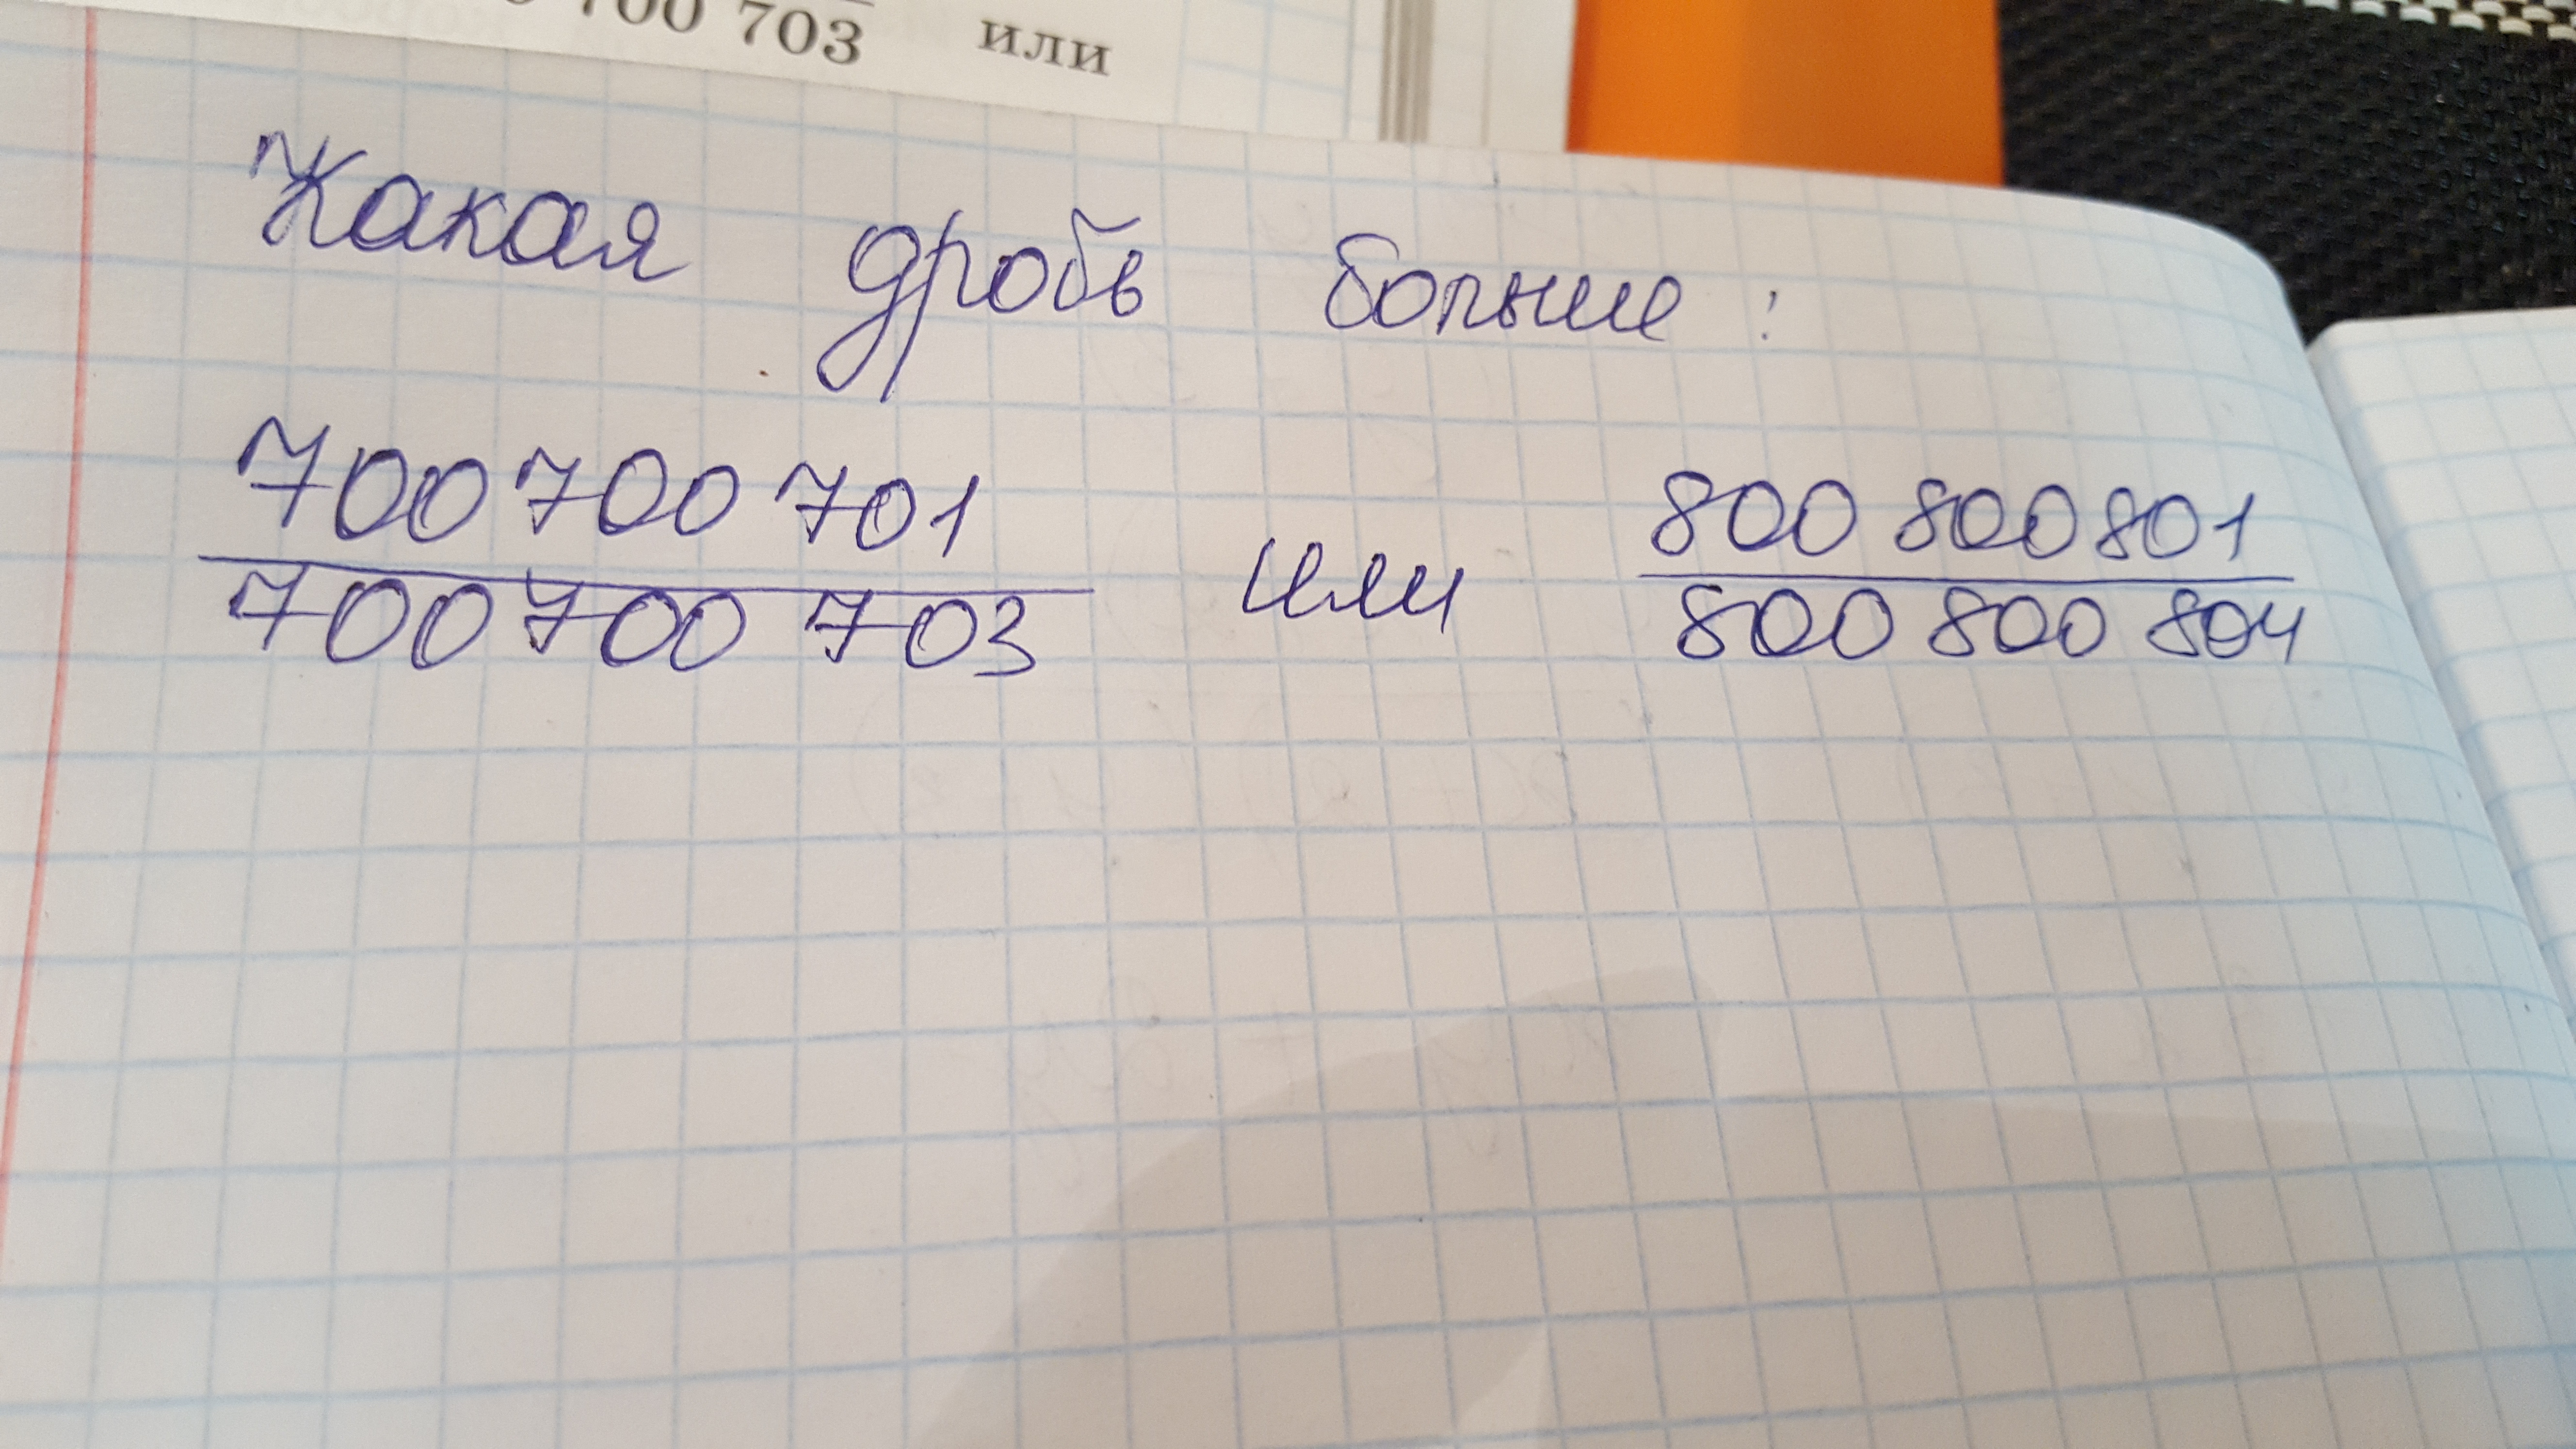 700 703 или
Какая дробь больше:
700 700 701
700 700 703
или
800 800 801
800 800 804